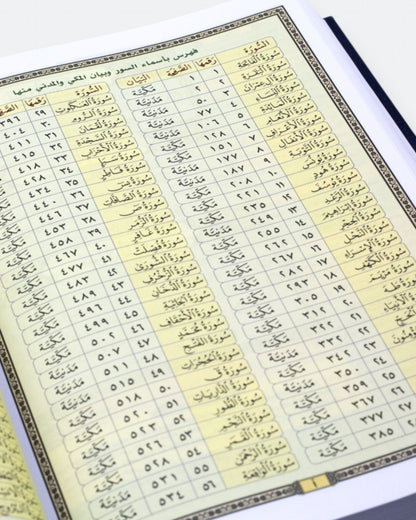 فهرس بأسماء السور وبيان المكي والمدني منها
السورة رقمها الصفحة البيان
سورة الفاتحة ١ ١ مكية
سورة البقرة ٢ ٢ مدنية
سورة آل عمران ٣ ٥٠ مدنية
سورة النساء ٤ ٧٧ مدنية
سورة المائدة ٥ ١٠٦ مدنية
سورة الأنعام ٦ ١٢٨ مكية
سورة الأعراف ٧ ١٥١ مكية
سورة الأنفال ٨ ١٧٧ مدنية
سورة التوبة ٩ ١٨٧ مدنية
سورة يونس ١٠ ٢٠٨ مكية
سورة هود ١١ ٢٢١ مكية
سورة يوسف ١٢ ٢٣٥ مكية
سورة الرعد ١٣ ٢٤٩ مدنية
سورة إبراهيم ١٤ ٢٥٥ مكية
سورة الحجر ١٥ ٢٦٢ مكية
سورة النحل ١٦ ٢٦٧ مكية
سورة الإسراء ١٧ ٢٨٢ مكية
سورة الكهف ١٨ ٢٩٣ مكية
سورة مريم ١٩ ٣٠٥ مكية
سورة طه ٢٠ ٣١٢ مكية
٢١ ٣٢٢ مكية
٢٢ ٣٣٢ مدنية
٢٣ ٣٤٢ مكية
٢٤ ٣٥٠ مدنية
٢٥ ٣٥٩ مكية
٢٦ ٣٦٧ مكية
٢٧ ٣٧٧ مكية
٢٨ ٣٨٥ مكية
السورة رقمها الصفحة
سورة العنكبوت ٢٩ ٣٩٦
سورة الروم ٣٠ ٤٠٤
سورة لقمان ٣١ ٤١١
سورة السجدة ٣٢ ٤١٥
سورة الأحزاب ٣٣ ٤١٨
سورة سبأ ٣٤ ٤٢٨
سورة فاطر ٣٥ ٤٣٤
سورة يس ٣٦ ٤٤٠
سورة الصافات ٣٧ ٤٤٦
سورة ص ٣٨ ٤٥٣
سورة الزمر ٣٩ ٤٥٨
سورة غافر ٤٠ ٤٦٧
سورة فصلت ٤١ ٤٧٧
سورة الشورى ٤٢ ٤٨٣
سورة الزخرف ٤٣ ٤٨٩
سورة الدخان ٤٤ ٤٩٦
سورة الجاثية ٤٥ ٤٩٩ مكية
سورة الأحقاف ٤٦ ٥٠٢ مكية
سورة محمد ٤٧ ٥٠٧ مدنية
سورة الفتح ٤٨ ٥١١ مدنية
سورة الحجرات ٤٩ ٥١٥ مدنية
سورة ق ٥٠ ٥١٨ مكية
سورة الذاريات ٥١ ٥٢٠ مكية
سورة الطور ٥٢ ٥٢٣ مكية
سورة النجم ٥٣ ٥٢٦ مكية
سورة القمر ٥٤ ٥٢٨ مكية
سورة الرحمن ٥٥ ٥٣١ مدنية
سورة الواقعة ٥٦ ٥٣٤ مكية
أ